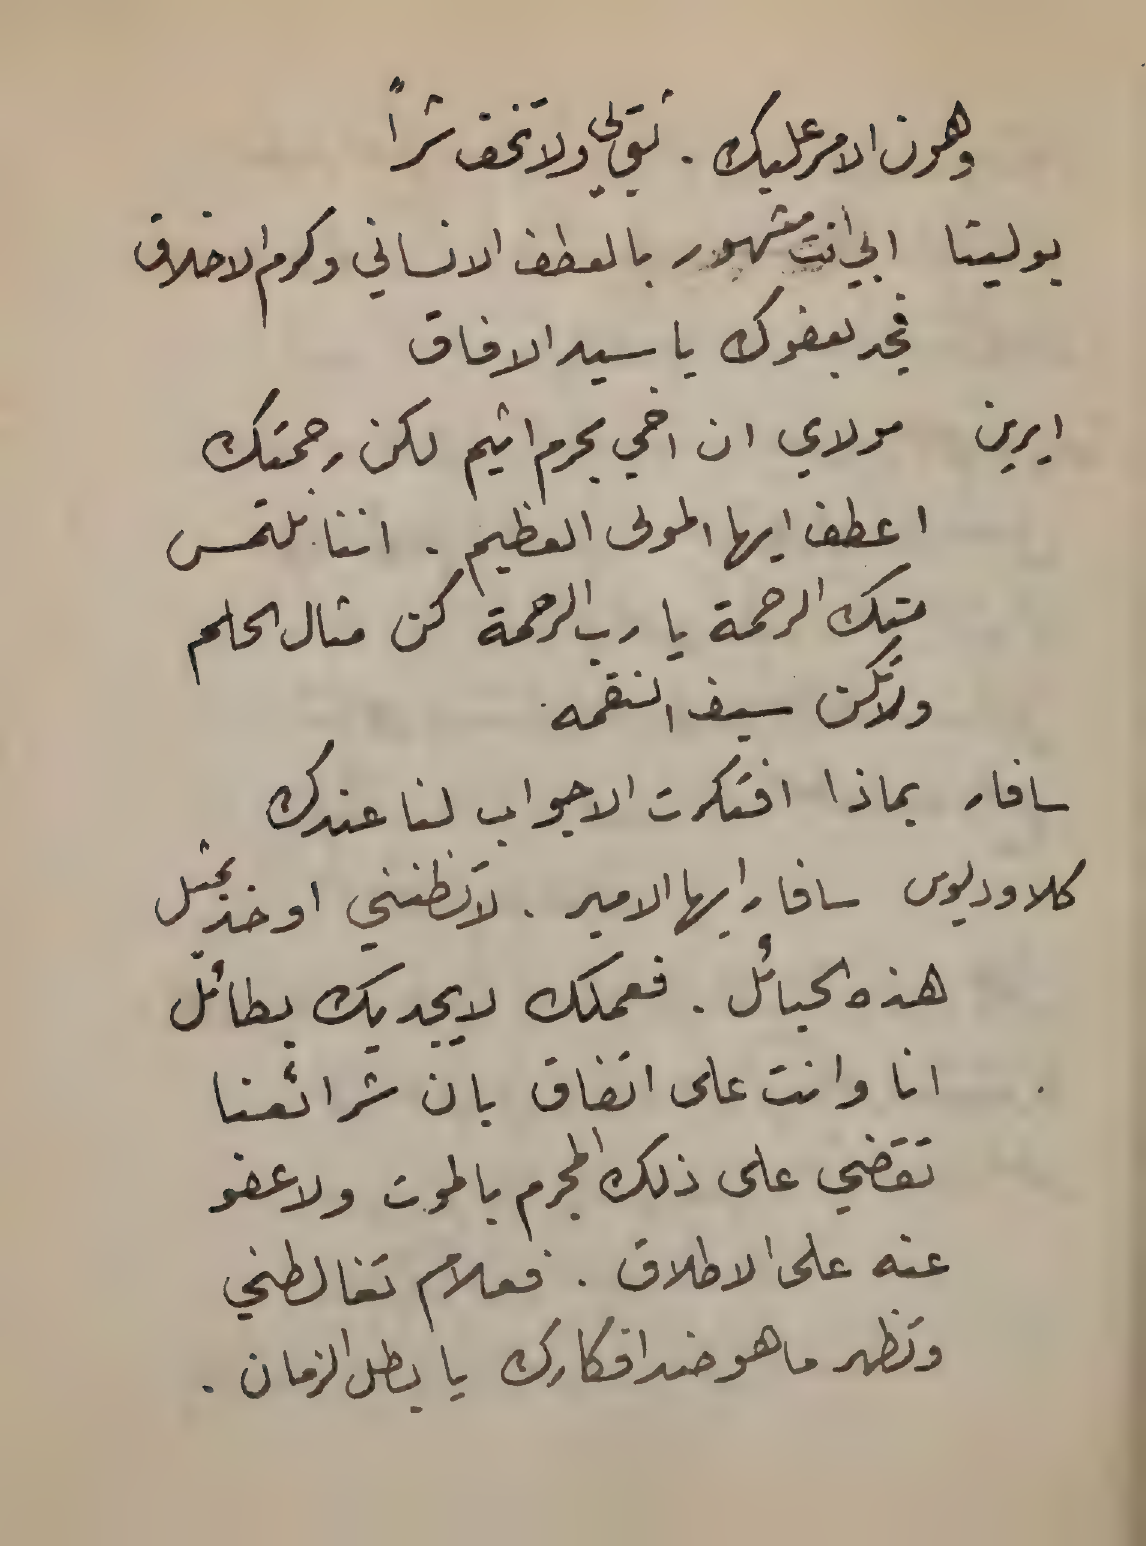 وهون الامر عليك . ثق بي ولا تخف شراً
بوليتا ابي أنت مشهور بالعطف الانساني وكرم الاخلاق
فجد بعفوك يا سيد الافاق
ايرين مولاي ان اخي مجرم اثيم لكن رحمتك
اعطف ايها المولى العظيم . اننا نلتمس
منك الرحمة يا رب الرحمة كن مثال الحلم
ولا تكن سيف النقمه
سافار بماذا افتكرت الاجواب لنا عندك
كلاوديوس سافار ايها الامير . لا تظنني اوخذ بمثل
هذه الحبائل . فعملك لا يجديك بطائل
انا وانت على اتفاق بان شرائعنا
تقضي على ذلك المجرم بالموت ولا عفو
عنه على الاطلاق . فعلام تغالطني
وتظهر ما هو ضد افكارك يا بطل الزمان .